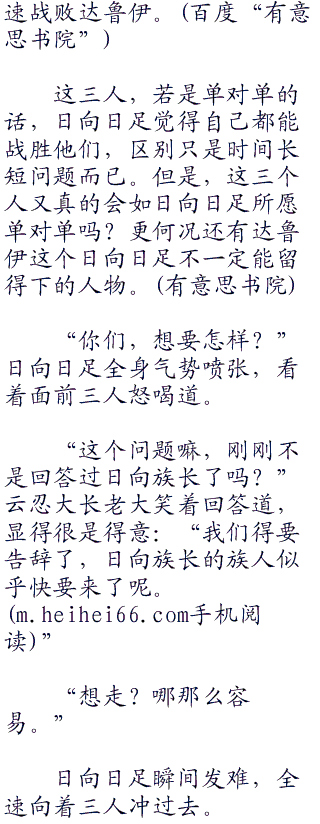 速战败达鲁伊。(百度“有意
思书院”)
这三人，若是单对单的
话，日向日足觉得自己都能
战胜他们，区别只是时间长
短问题而已。但是，这三个
人又真的会如日向日足所愿
单对单吗？更何况还有达鲁
伊这个日向日足不一定能留
得下的人物。(有意思书院)
“你们，想要怎样？”
日向日足全身气势喷张，看
着面前三人怒喝道。
“这个问题嘛，刚刚不
是回答过日向族长了吗？”
云忍大长老大笑着回答道，
显得很是得意：“我们得要
告辞了，日向族长的族人似
乎快要来了呢。
(m.heihei66.com手机阅
读)”
“想走？哪那么容
易。”
日向日足瞬间发难，全
速向着三人冲过去。